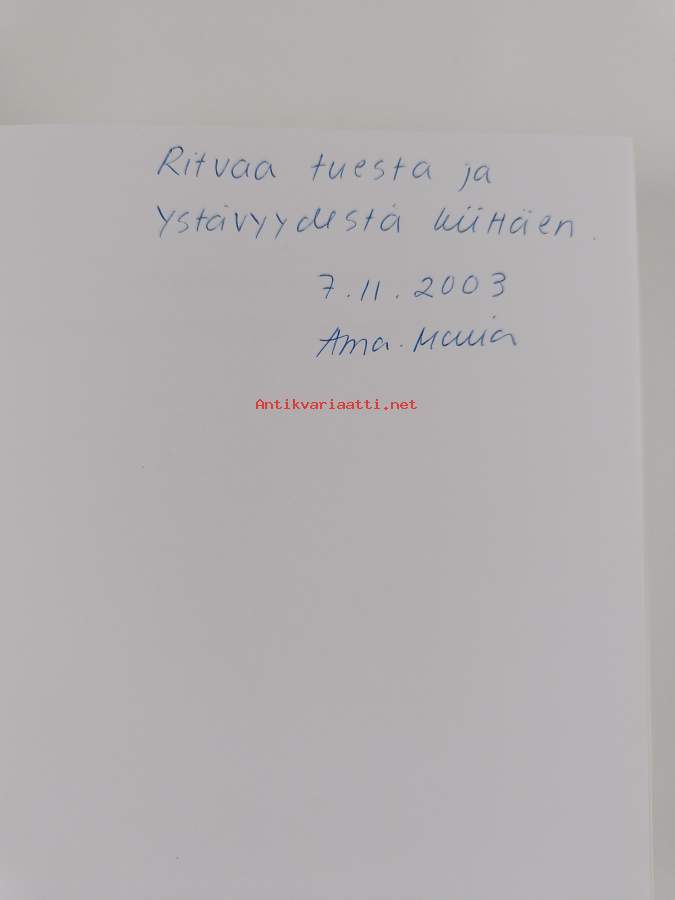 Ritvaa tuesta ja
ystävyydestä kiittäen.
7.11.2003
Anna-Maria
Antikvariaatti.net